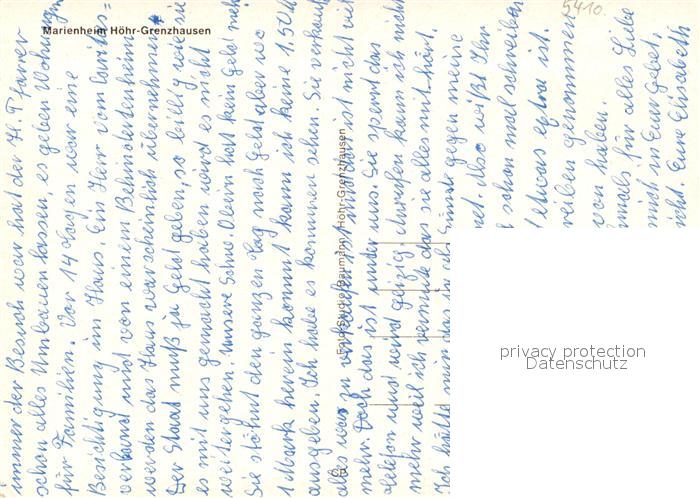 Marienheim Höhr-Grenzhausen
5410.
Foto Studio Baumann, Höhr-Grenzhausen
immer der Besuch war hat der H. Pfarrer
schon alles Umbauen lassen, es geben Wohnungen
für Familien. Vor 14 Tagen war eine
Besichtigung im Haus. Ein Herr vom Caritas=
verband und von einem Behindertenheim
werden das Haus warscheinlich übernehmen
Der Staat muß ja Geld geben, so billig wie sie
es mit uns gemacht haben wird es nicht
weitergehen. Unsere Schw. Oberin hat kein Geld mehr
Sie stöhnt den ganzen Tag nach Geld aber wo
1 Mark herein kommt kann ich keine 1.50 M
ausgeben. Ich habe es kommen sehen. Sie verkauft
alles was zu verkaufen ist und dann ist nicht viel
mehr. Doch das ist unter uns. Sie sperrt das
Telefon und wird geizig. Anrufen kann ich nicht
mehr weil ich vermute das sie alles mit hört.
Ich hätte
Sünde gegen meine
net. Also wißt Ihr
schon mal schreiben
etwas extra ist.
reiben genommen
von haben.
hmals für alles Liebe
mich in Euer Gebet,
nicht. Eure Elisabeth
privacy protection
Datenschutz